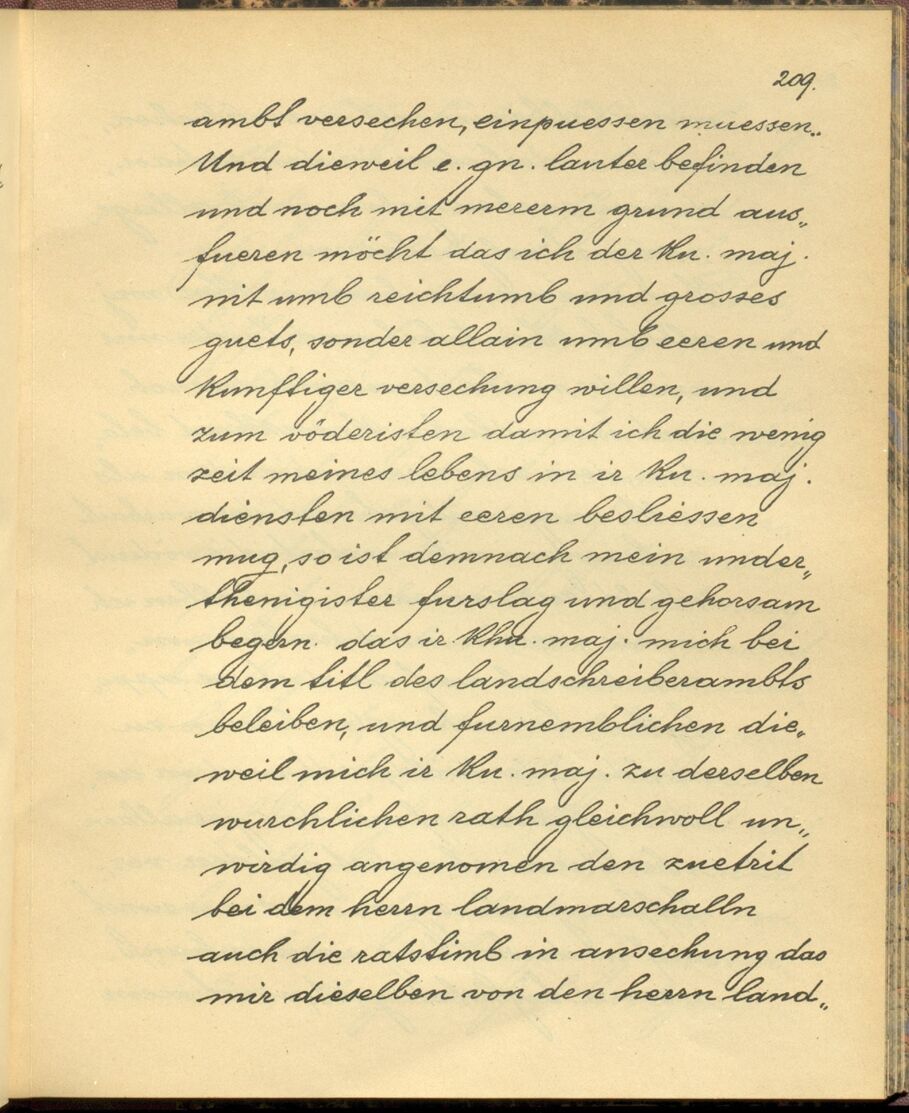 209.
ambt versechen, einpuessen muessen„
Und dieweil e. gn. lauter befinden
und noch mit mererm grund aus„
fueren möcht das ich der Ku. maj.
nit umb reichtumb und grosses
guets, sonder allain umb eeren und
kunftiger versechung willen, und
zum vöderisten damit ich die wenig
zeit meines lebens in ir Ku. maj.
diensten mit eeren besliessen
mug, so ist demnach mein under„
thenigister furslag und gehorsam
begern. das ir Khu. maj. mich bei
dem titl des landschreiberambts
beleiben, und furnemblichen die„
weil mich ir Ku. maj. zu derselben
wurchlichen rath gleichwoll un„
wirdig angenomen den zuetrit
bei dem herrn landmarschalln
auch die ratstimb in ansechung das
mir dieselben von den herrn land„